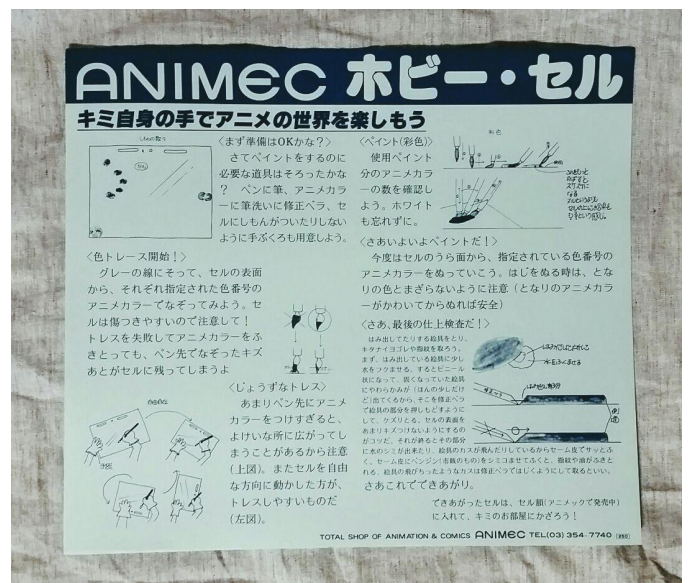 ANIMEC ホビー・セル
キミ自身の手でアニメの世界を楽しもう
〈まず準備はOKかな?〉
さてペイントをするのに
必要な道具はそろったかな
? ペンに筆、アニメカラ
ーに筆洗いに修正ベラ、セ
ルにしもんがついたりしない
ように手ぶくろも用意しよう。
〈色トレース開始!〉
グレーの線にそって、セルの表面
から、それぞれ指定された色番号の
アニメカラーでなぞってみよう。セ
ルは傷つきやすいので注意して!
トレスを失敗してアニメカラーをふ
きとっても、ペン先でなぞったキズ
あとがセルに残ってしまうよ
〈じょうずなトレス〉
あまりペン先にアニメ
カラーをつけすぎると、
よけいな所に広がってし
まうことがあるから注意
(上図)。またセルを自由
な方向に動かした方が、
トレスしやすいものだ
(左図)。
〈ペイント(彩色)〉
使用ペイント
分のアニメカラ
ーの数を確認し
よう。ホワイト
も忘れずに。
彩色
〈さあいよいよペイントだ!〉
今度はセルのうら面から、指定されている色番号の
アニメカラーをぬっていこう。はじをぬる時は、とな
りの色とまざらないように注意(となりのアニメカラ
ーがかわいてからぬれば安全)
〈さあ、最後の仕上検査だ!〉
はみ出してたりする絵具をとり、
キタナイヨゴレや指紋を取ろう。
まず、はみ出している絵具に少し
水をフクませる。するとビニール
状になって、固くなっていた絵具
にやわらかみが(ほんの少しだけ
ど)出てくるから、そこを修正ベラ
で絵具の部分を押しもどすようにし
て、ケズリとる。セルの表面を
あまりキズつけないようにするの
がコツだ。それが終るとその部分
に水のシミが出来たり、絵具のカスが飛んだりしているからセーム皮でサッとふ
く。セーム皮にベンジン(市販のもの)をシミコませてふくと、指紋や油がふきと
れる。絵具の飛びちったようなカスは修正ベラではじくようにして取るといい。
さあこれでできあがり。
できあがったセルは、セル額(アニメックで発売中)
に入れて、キミのお部屋にかざろう!
TOTAL SHOP OF ANIMATION & COMICS ANIMEC TEL(03) 354-7740